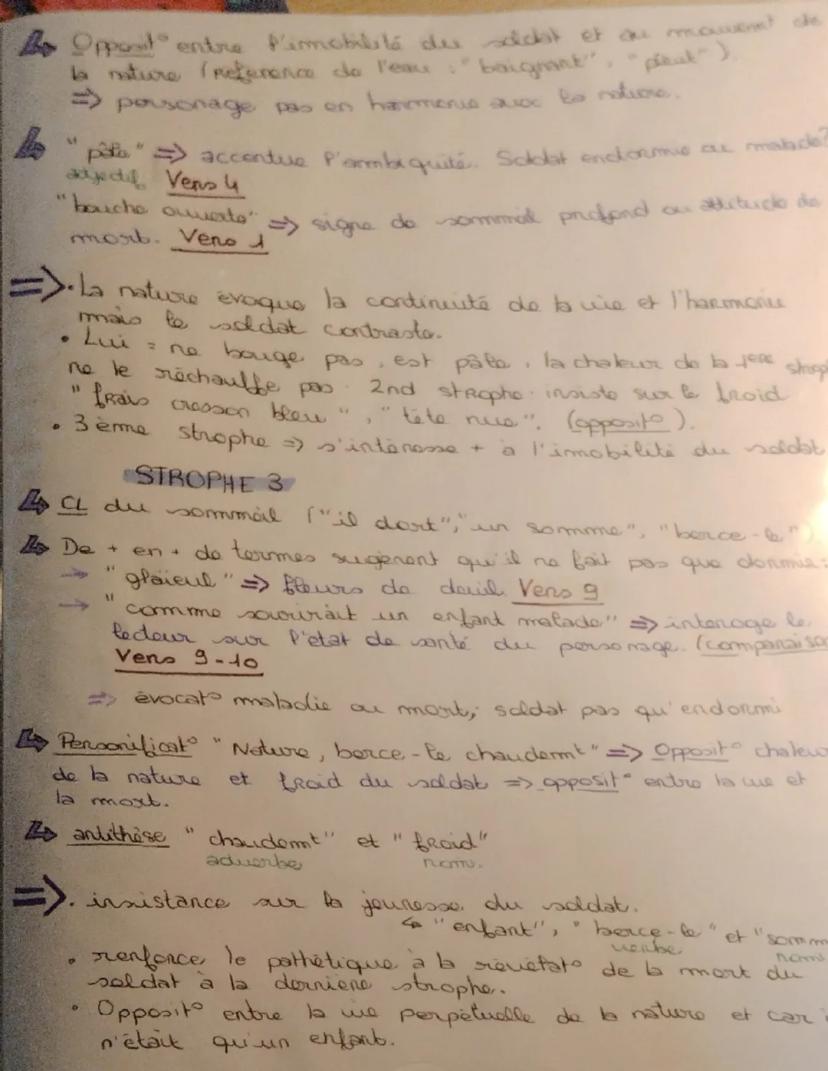 ↳ Opposit° entre l'immobilité du soldat et au mouvement de
la nature (reference de l'eau : "baignant", "pleut").
=> personage pas en harmonie avec la nature.
↳ "pâle" => accentue l'ambiguité. Soldat endormie ou malade?
adjectif Vers 4
"bouche ouverte" => signe de sommeil profond ou attitude de
mort. Vers 1
=> • La nature évoque la continuité de la vie et l'harmonie
mais le soldat contraste.
• Lui = ne bouge pas, est pâle, la chaleur de la 1ere strop
ne le réchauffe pas. 2nd strophe insiste sur le froid
"frais cresson bleu", "tête nue". (opposit°).
• 3ème strophe => s'intéresse + à l'imobilité du soldat
STROPHE 3
↳ CL du sommeil ("il dort", "un somme", "berce-le")
↳ De + en + de termes sugèrent qu'il ne fait pas que dormir :
→ "glaïeul" => fleurs de deuil Vers 9
→ "comme sourirait un enfant malade" => interoge le
lecteur sur l'état de santé du personage. (comparaiso
Vers 9-10
=> évocat° maladie ou mort, soldat pas qu'endormi
↳ Personificat° "Nature, berce-le chaudemt" => Opposit° chaleur
de la nature et froid du soldat => opposit° entre la vie et
la mort.
↳ antithèse "chaudemt" et "froid"
adverbe nom.
=> • insistance sur la jeunesse du soldat.
↳ "enfant", "berce-le" et "somm
verbe nom
• renforce le pathétique à la révélat° de la mort du
soldat à la derniere strophe.
• Opposit° entre la vie perpétuelle de la nature et car i
n'était qu'un enfant.